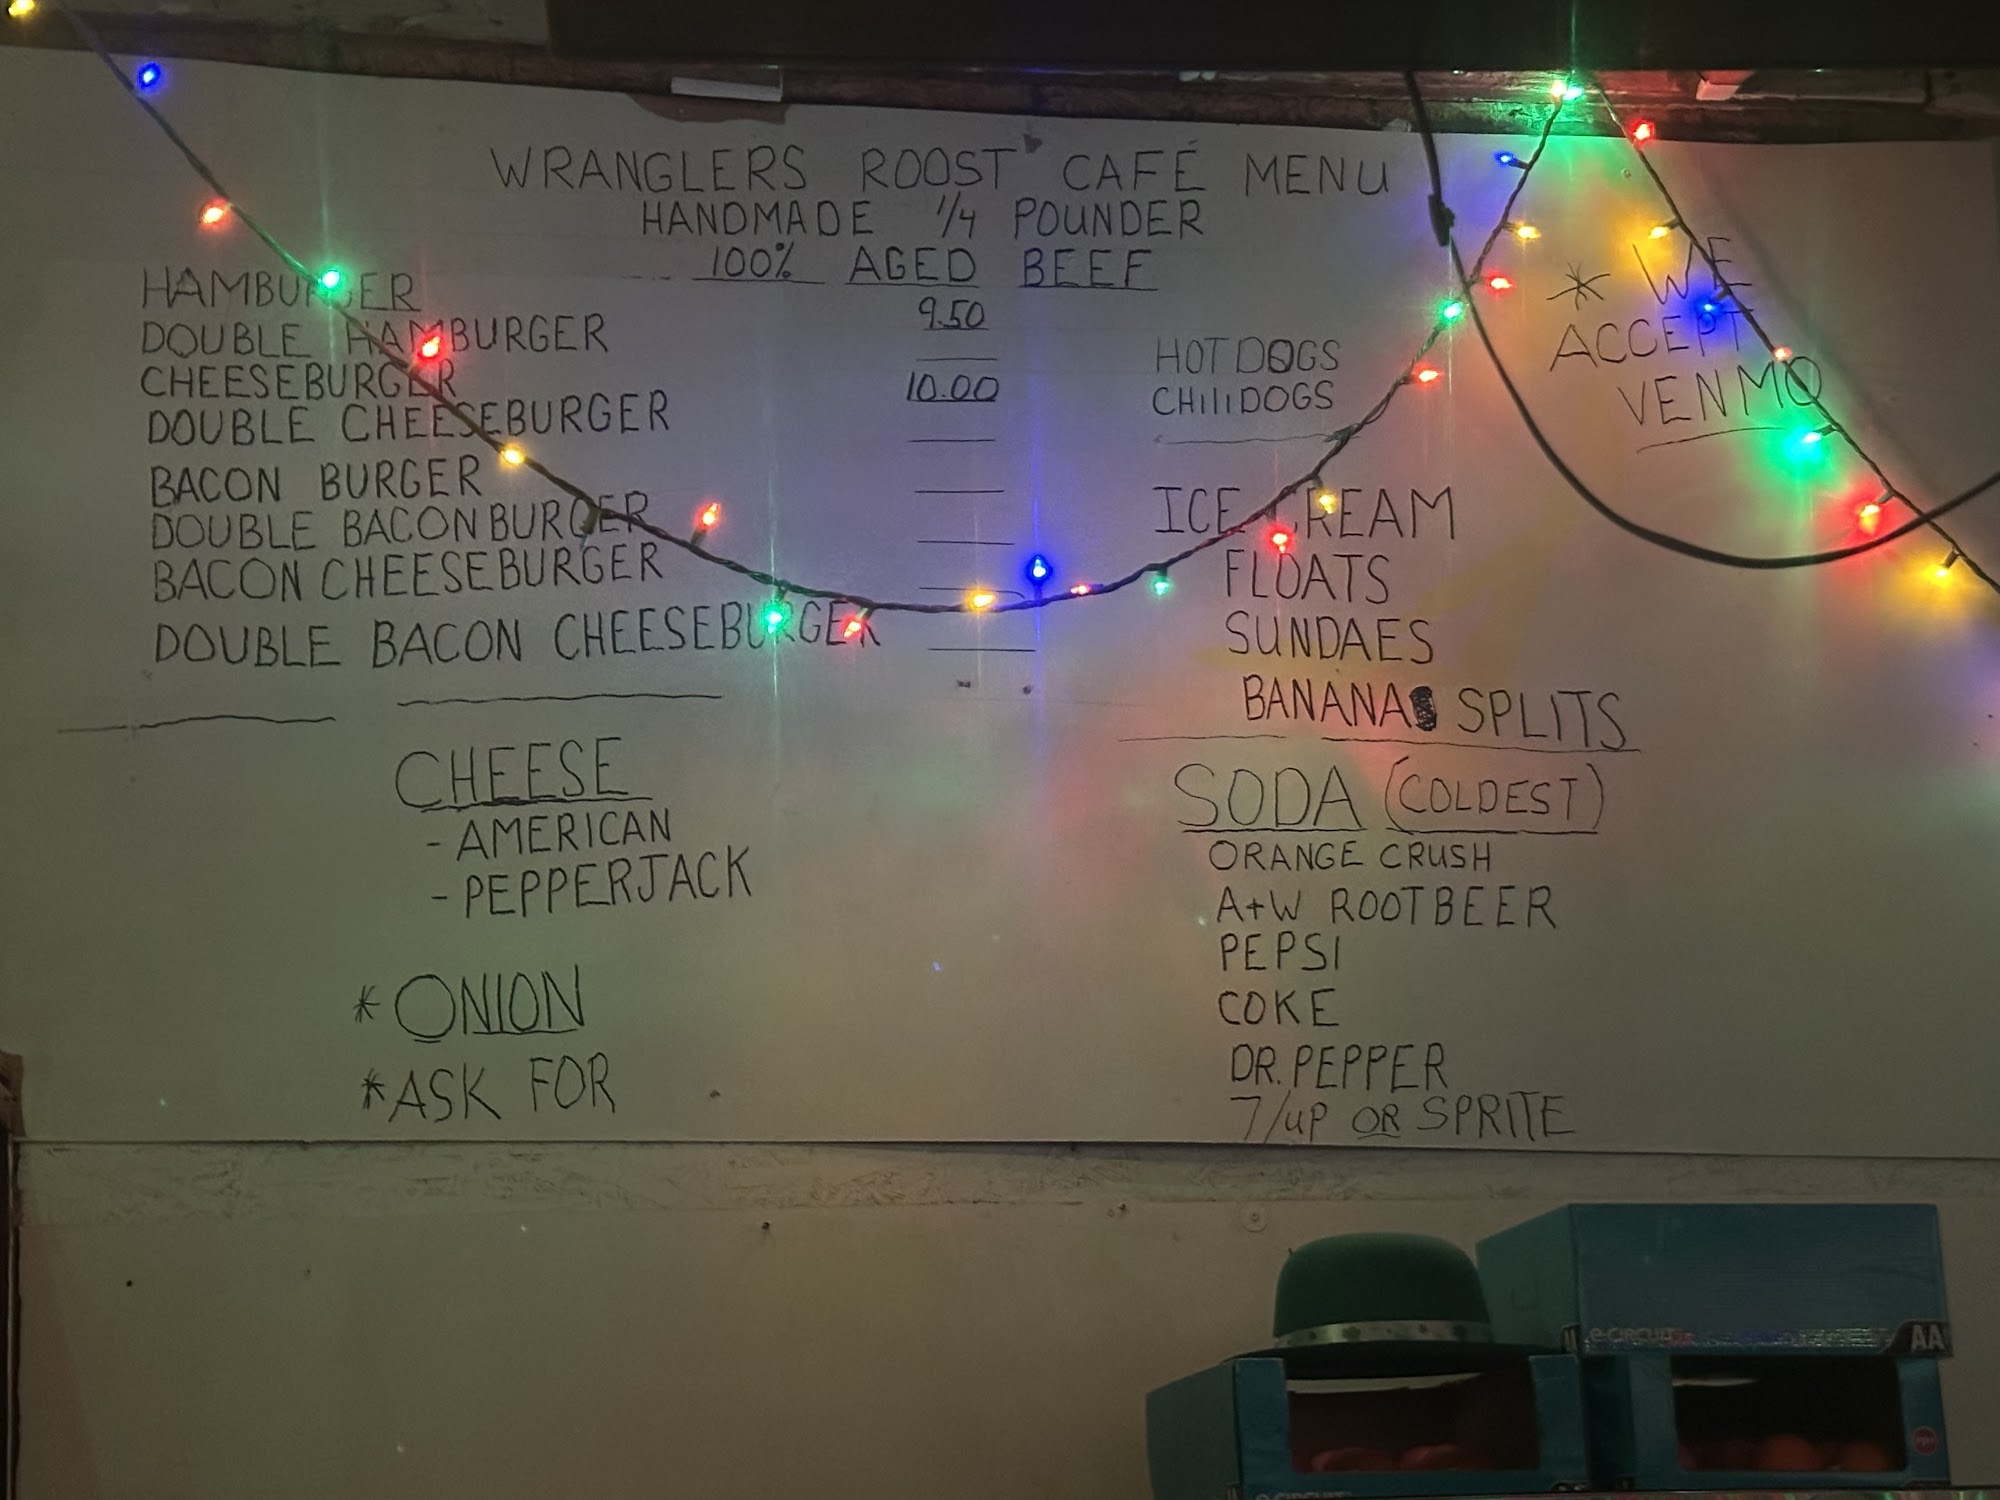 WRANGLERS ROOST CAFÉ MENU
HANDMADE 1/4 POUNDER
100% AGED BEEF
HAMBURGER 9.50
DOUBLE HAMBURGER
CHEESEBURGER 10.00
DOUBLE CHEESEBURGER
BACON BURGER
DOUBLE BACON BURGER
BACON CHEESEBURGER
DOUBLE BACON CHEESEBURGER
CHEESE
- AMERICAN
- PEPPERJACK
* ONION
* ASK FOR
HOT DOGS
CHIlIDOGS
ICE CREAM
FLOATS
SUNDAES
BANANA SPLITS
SODA (COLDEST)
ORANGE CRUSH
A+W ROOTBEER
PEPSI
COKE
DR. PEPPER
7/UP OR SPRITE
* WE
ACCEPT
VENMO
e-CIRCUIT
AA